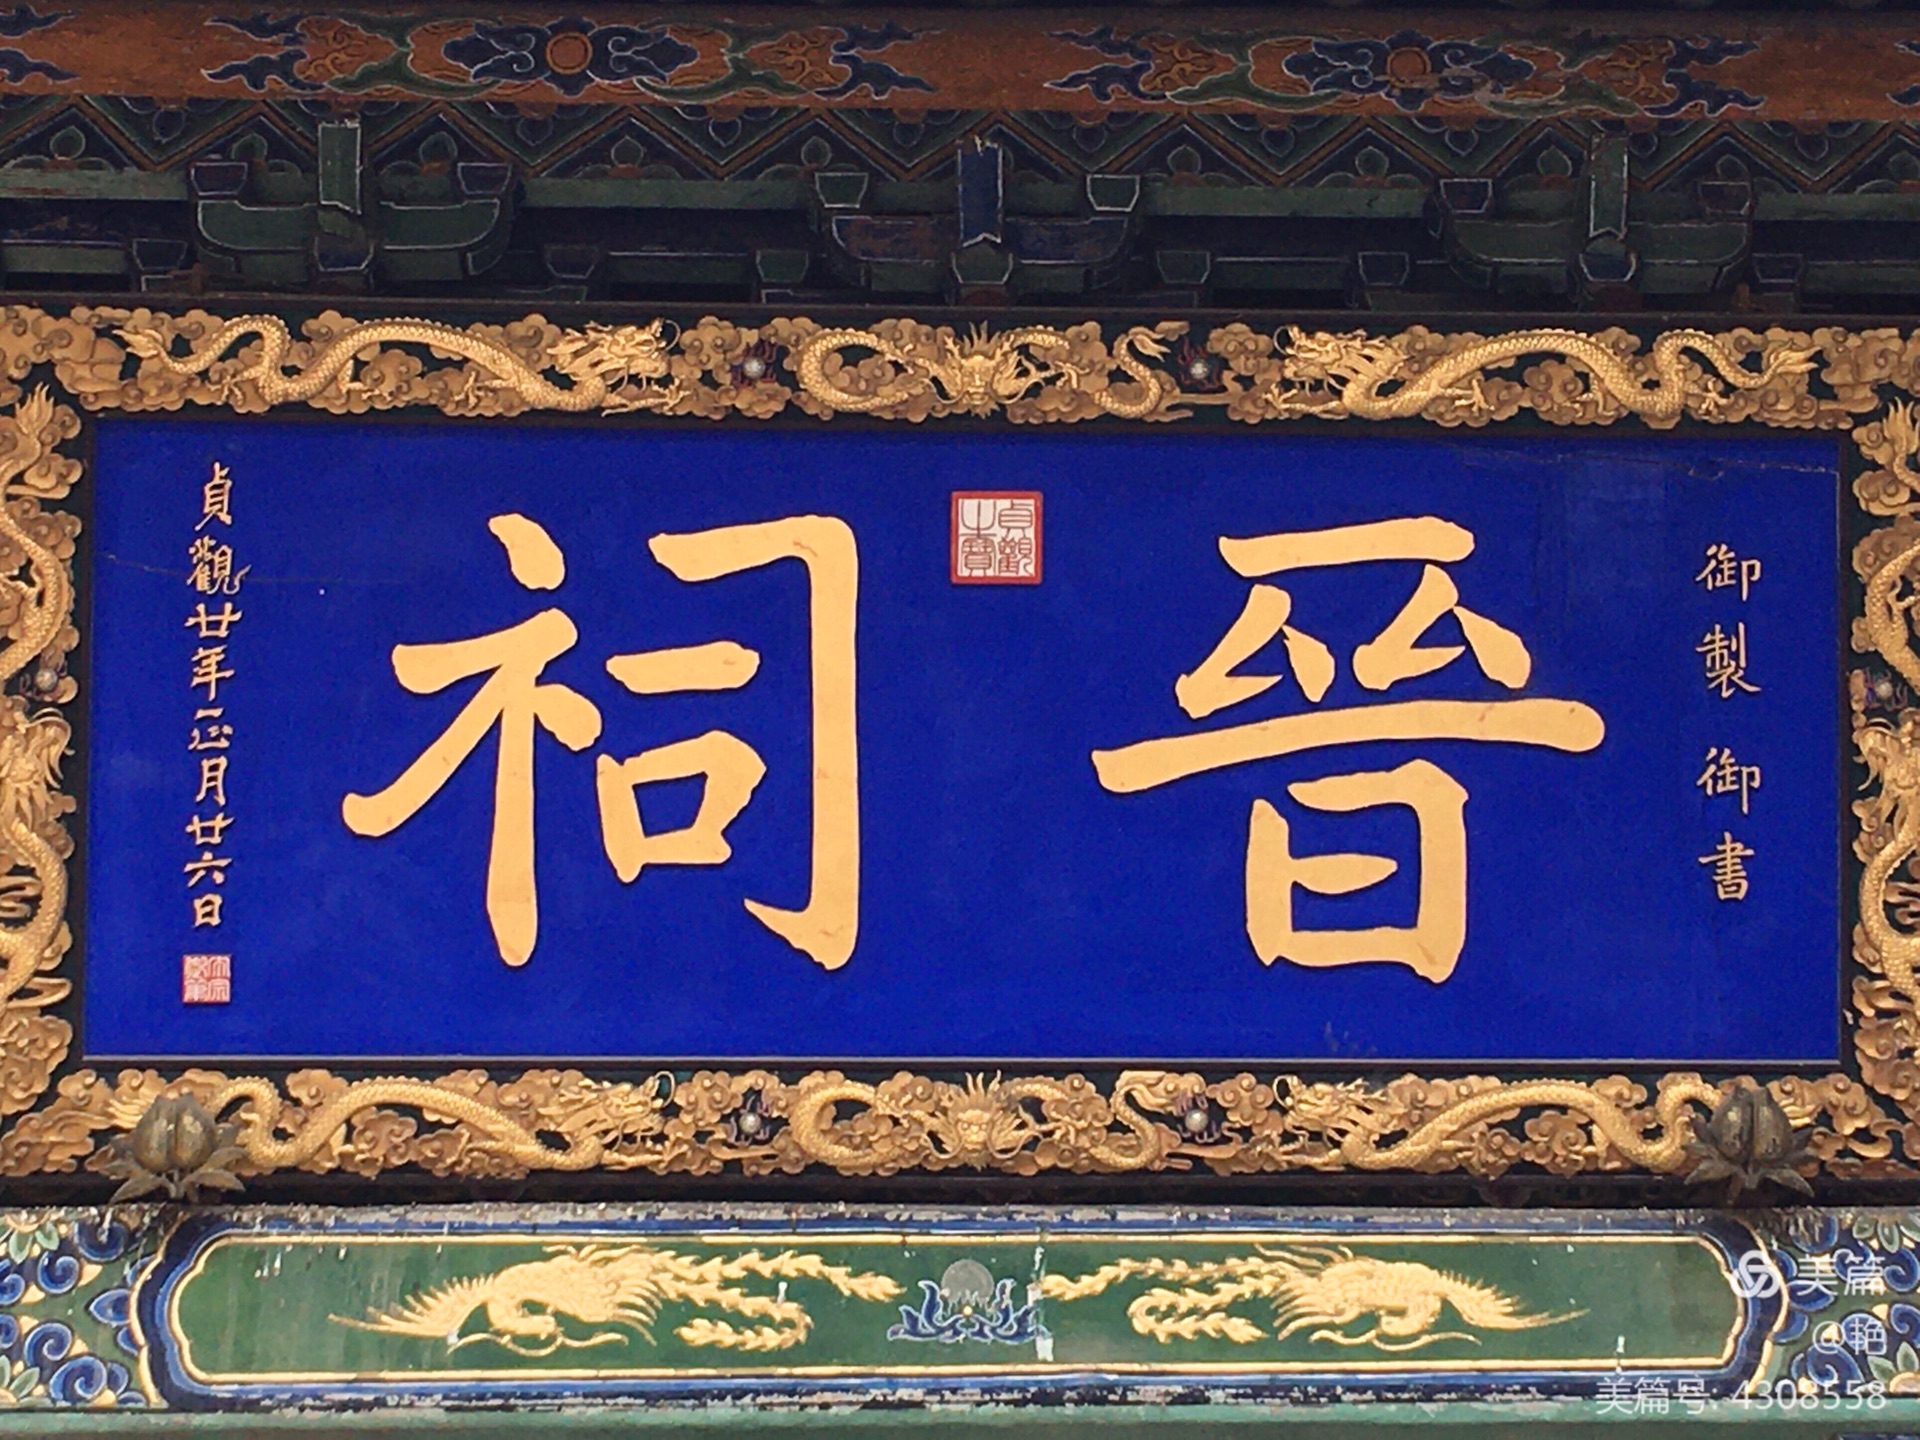 御製御書
晉祠
貞觀之寶
貞觀廿年正月廿六日
美篇
@艳
美篇号: 4308558